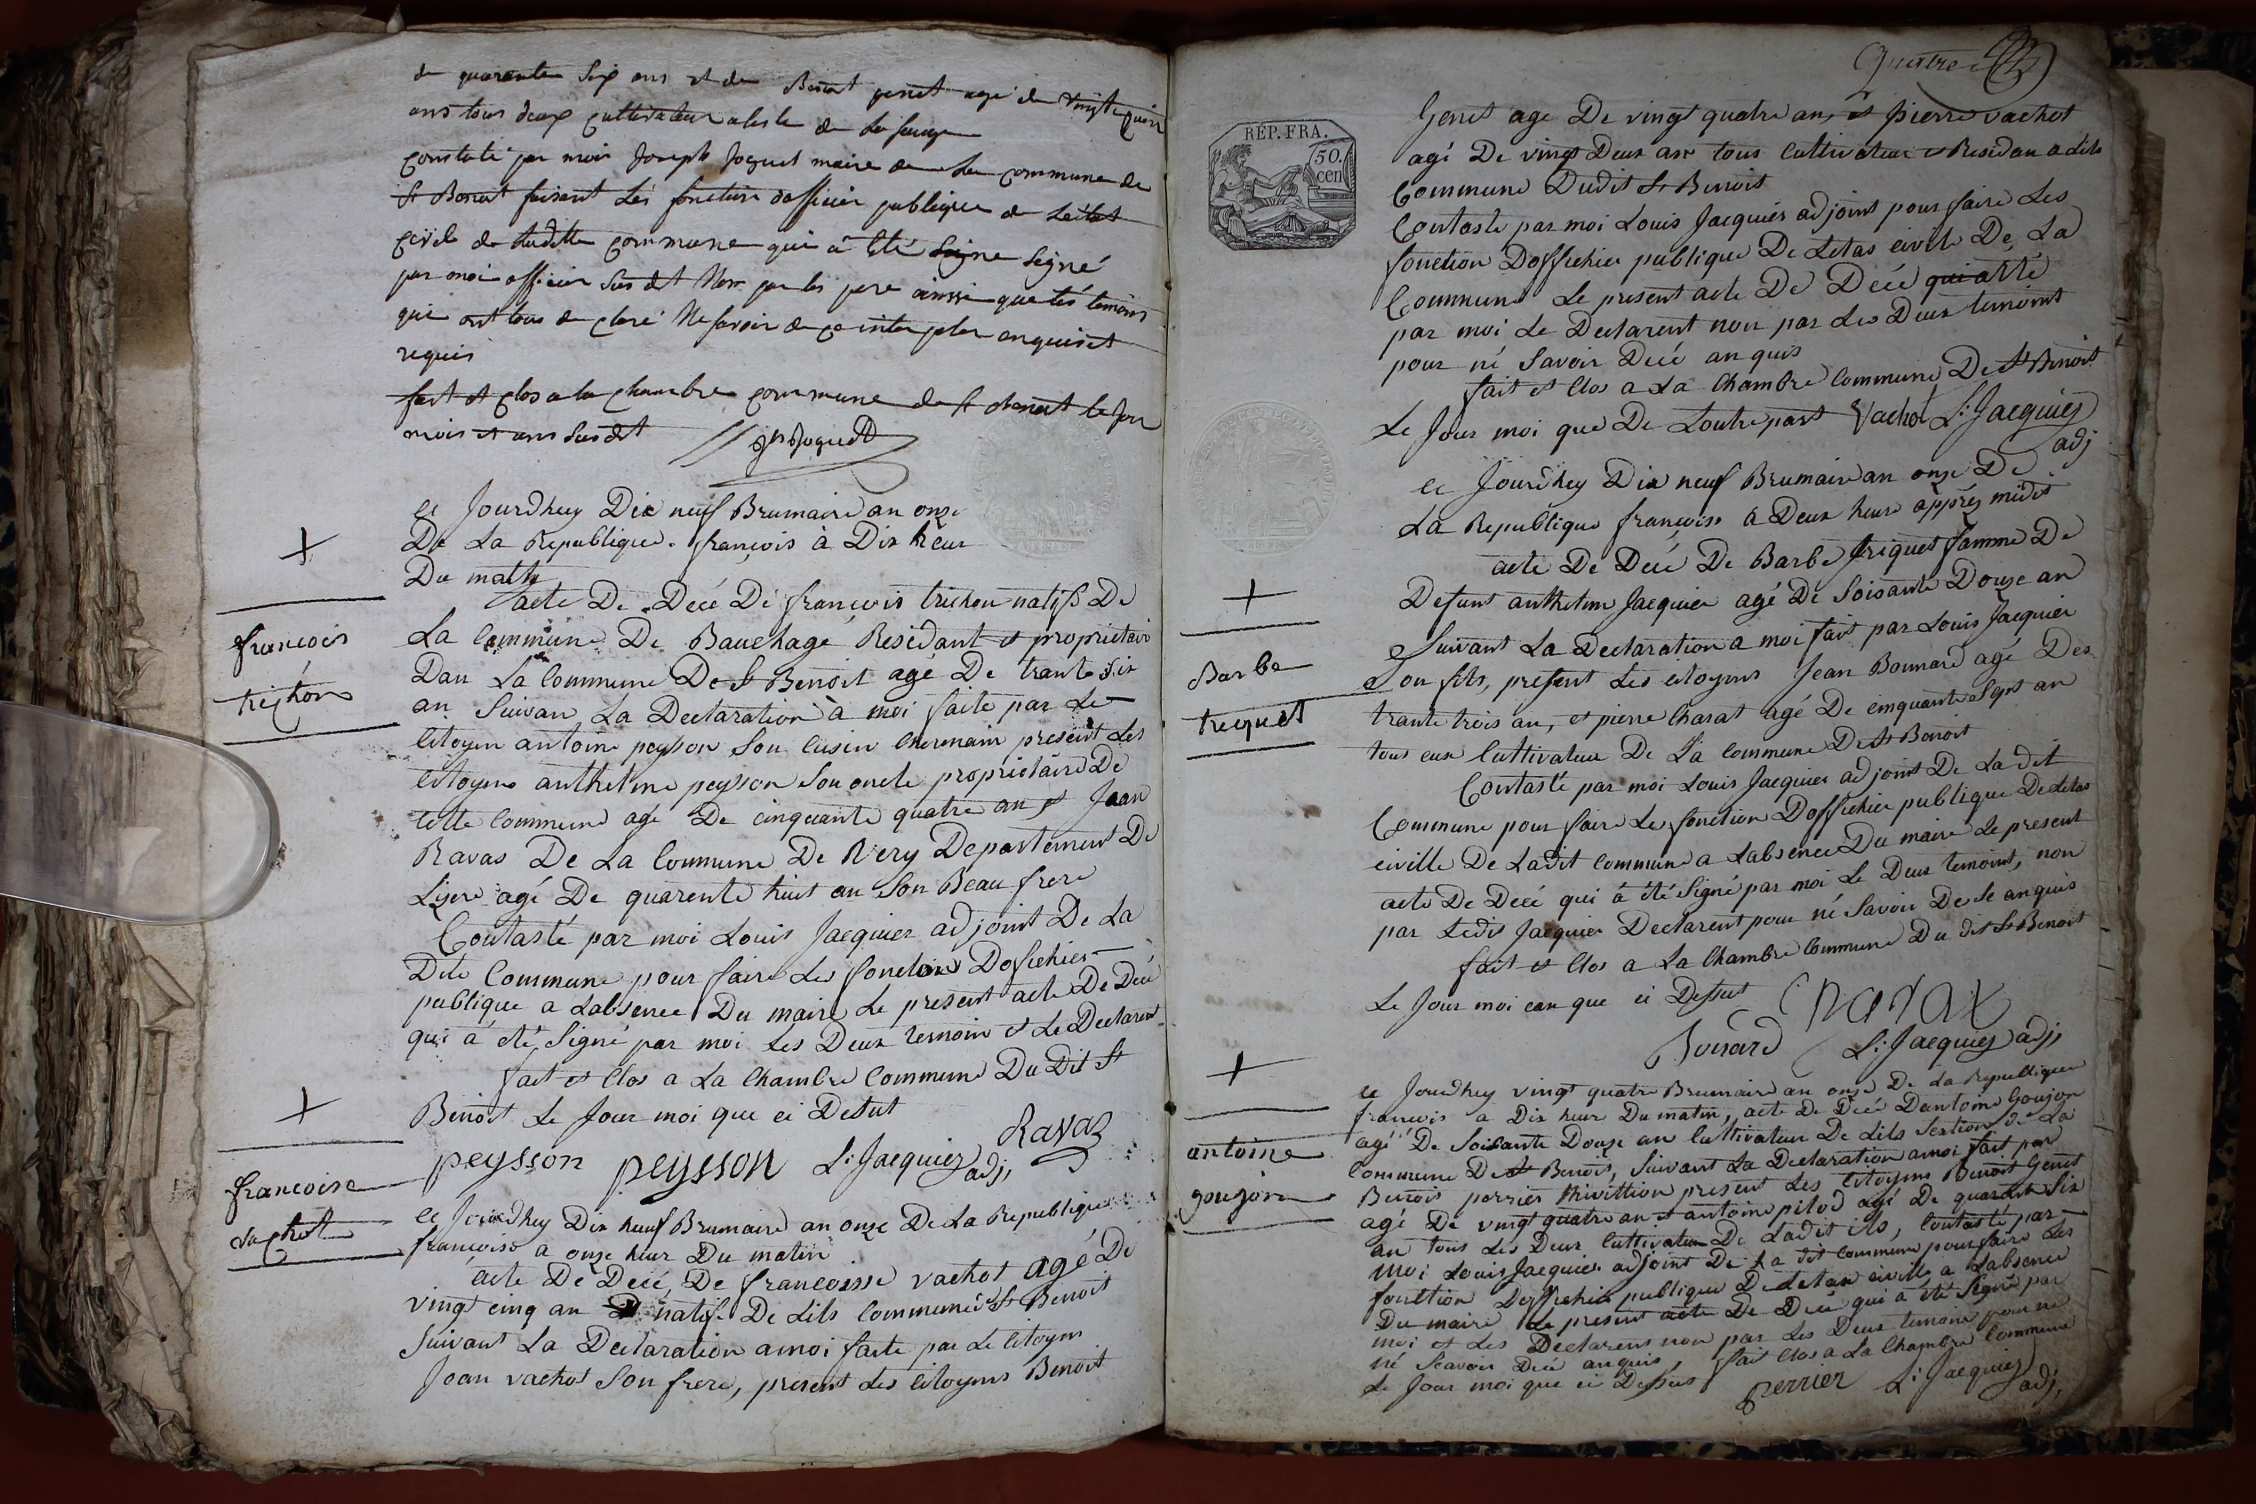 de quarante Six ans et de Benoit genet age de vingt quatre
ans tous deux cultivateur a lisle de
Constaté par moi Joseph Joguet maire de la commune de
St Benoit faisant Les fonction dofficier publique de Letat
Civile de Ladite commune qui a Eté Signe Signé
par moi officier Sus dit Non par les pere ainssi que les temoins
qui ont tous de claré Ne savoir de ce inter peler enquis et
requis
fait et clos a la chambre commune de St benoit le jour
mois et ans Sus dit Jph Joguet
ce Jourdhuy Dix neuf Brumaire an onze
De La Republique françois à Dix heur
Du matin
acte De Décé De françois trichon natif De
La Commune De Bauchage Residant et proprietair
Dan La Commune De St Benoit agé De trante Six
an Suivan La Declaration à moi faite par Le
Citoyen antoine peysson Son Cusin Chermain present Les
Citoyens anthelme peysson Son oncle proprietaire De
Cette Commune agé De cinquante quatre an et Jean
Ravas De La Commune De Very Departement De
Lisere agé De quarente huit an Son Beau frere
Contasté par moi Louis Jacquier adjoint De La
Dite Commune pour faire Les fonctions Dofichier
publique a Labsence Du maire Le present acte De Décé
qui à été Signé par moi Les Deux temoin et Le Declarent
fait et Clos a La Chambre Commune Du Dit St
Benoit Le Jour moi que ci Desut
peysson peysson L: Jacquier adj, Ravaz
ce Jourdhuy Dix neuf Brumaire an onze De La Republique
françoise a onze heur Du matin
acte De Décé De francoisse vachot agé De
vingt cinq an natif De Lils Commune de St Benoit
Suivant La Declaration a moi faite par Le Citoyen
Joan vachot Son frere, present Les Citoyens Benoit
francois
trichon
francoise
vachot
Quatre
RÉP. FRA.
50.
cen
Genet age De vingt quatre an, et pierre vachot
agé De vingt Deux an tous Cultivateur et Residan a Lils
Commune Dudit St Benoit
Contasté par moi Louis Jacquier adjoint pour faire Les
fonction Doffichier publique De Letas civile De La
Commune Le present acte De Décé qui a été
par moi Le Declarent non par Les Deux temoint
pour né Savoir Décé anquis
fait et Clos a La Chambre Commune De St Benoit
Le Jour moi que De Loutre part Vachot L: Jacquier
adj
ce Jourdhuy Dix neuf Brumaire an onze De
La Republique françoise a Deux heure apprés midit
acte De Décé De Barbe triquet famme De
Defunt anthelme Jacquier agé De Soisante Douze an
Suivant La Declaration a moi fait par Louis Jacquier
Son fils, present Les citoyens Jean Bonnard agé De
trante trois an, et pierre Charat agé De cinquante Sept an
tous eux Cultivateur De La Commune De St Benoit
Contasté par moi Louis Jacquier adjoint De La dit
Commune pour faire Les fonction Doffichier publique De Letas
civille De La dit Commune a Labsence Du maire Le present
acte De Décé qui à été Signé par moi Le Deux temoint, non
par Ledit Jacquier Declarent pour né Savoir De Se anquis
fait et Clos a La Chambre Commune Du dit St Benoit
Le Jour moi ean que ci Dessut
Bonard L: Jacquier adj,
ce Jourdhuy vingt quatre Brumaire an onze De La Republique
francois a Dix heur Du matin, acte De Décé Dantoine Goujon
agé De Soisante Douze an Cultivateur De Lils Section De La
Commune De St Benoit, Suivant La Declaration a moi fait par
Benoit perrier present Les Citoyens Benoit Genet
agé De vingt quatre an et antoine pilod agé De quarant Six
an tous Les Deux Cultivateur De Ladit ils, Contasté par
moi Louis Jacquier adjoint De La dit Commune pour faire Les
fonction Doffichier publique De Letas civille a Labsence
Du maire Le present acte De Décé qui a été Signé par
moi et Les Declarent non par Les Deux temoin pour ne
né Scavoir Décé anquis, fait Clos a La Chambre Commune
Le Jour moi que ci Dessus perrier L: Jacquier
adj,
Barbe
trequet
antoine
goujon